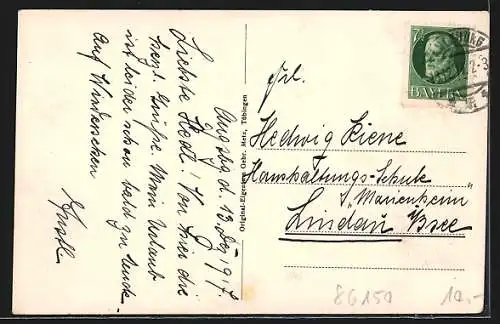 Augsbg. d. 13. Dez. 1917.
Liebste Hedl! Von hier die
herzl. Grüße. Mein Urlaub
ist leider schon bald zu Ende.
Auf Wiedersehen
Gustl
Original-Eigentum Gebr. Metz, Tübingen
7½
BAYERN
Frl.
Hedwig Kiene
Haushaltungs-Schule
"Marienheim"
Lindau i/Bsee
86150
10.-